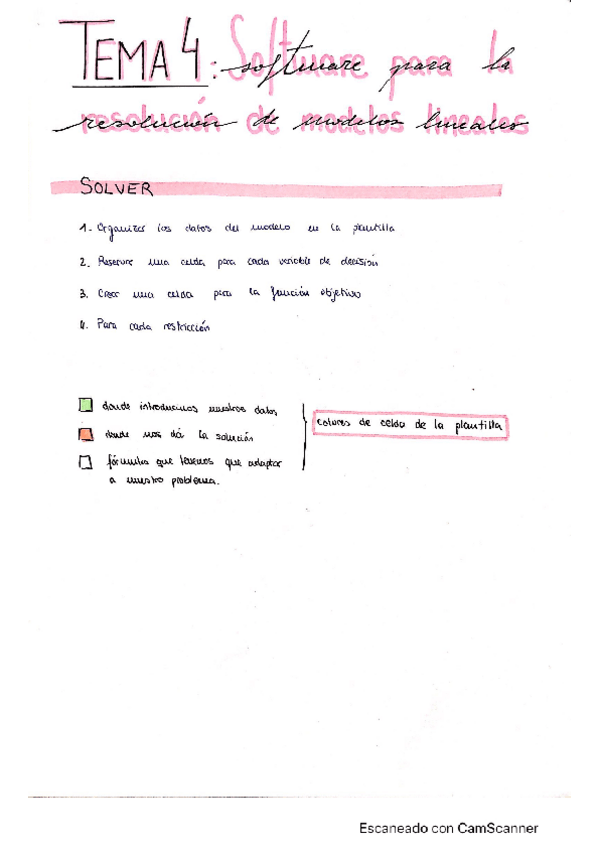 TEMA 4: Software para la
resolución de modelos lineales
SOLVER
1. Organizar los datos del modelo en la plantilla
2. Reservar una celda para cada variable de decisión
3. Crear una celda para la función objetivo
4. Para cada restricción
donde introducimos nuestros datos
donde nos dá la solución
fórmulas que tenemos que adaptar
a nuestro problema.
colores de celda de la plantilla
Escaneado con CamScanner